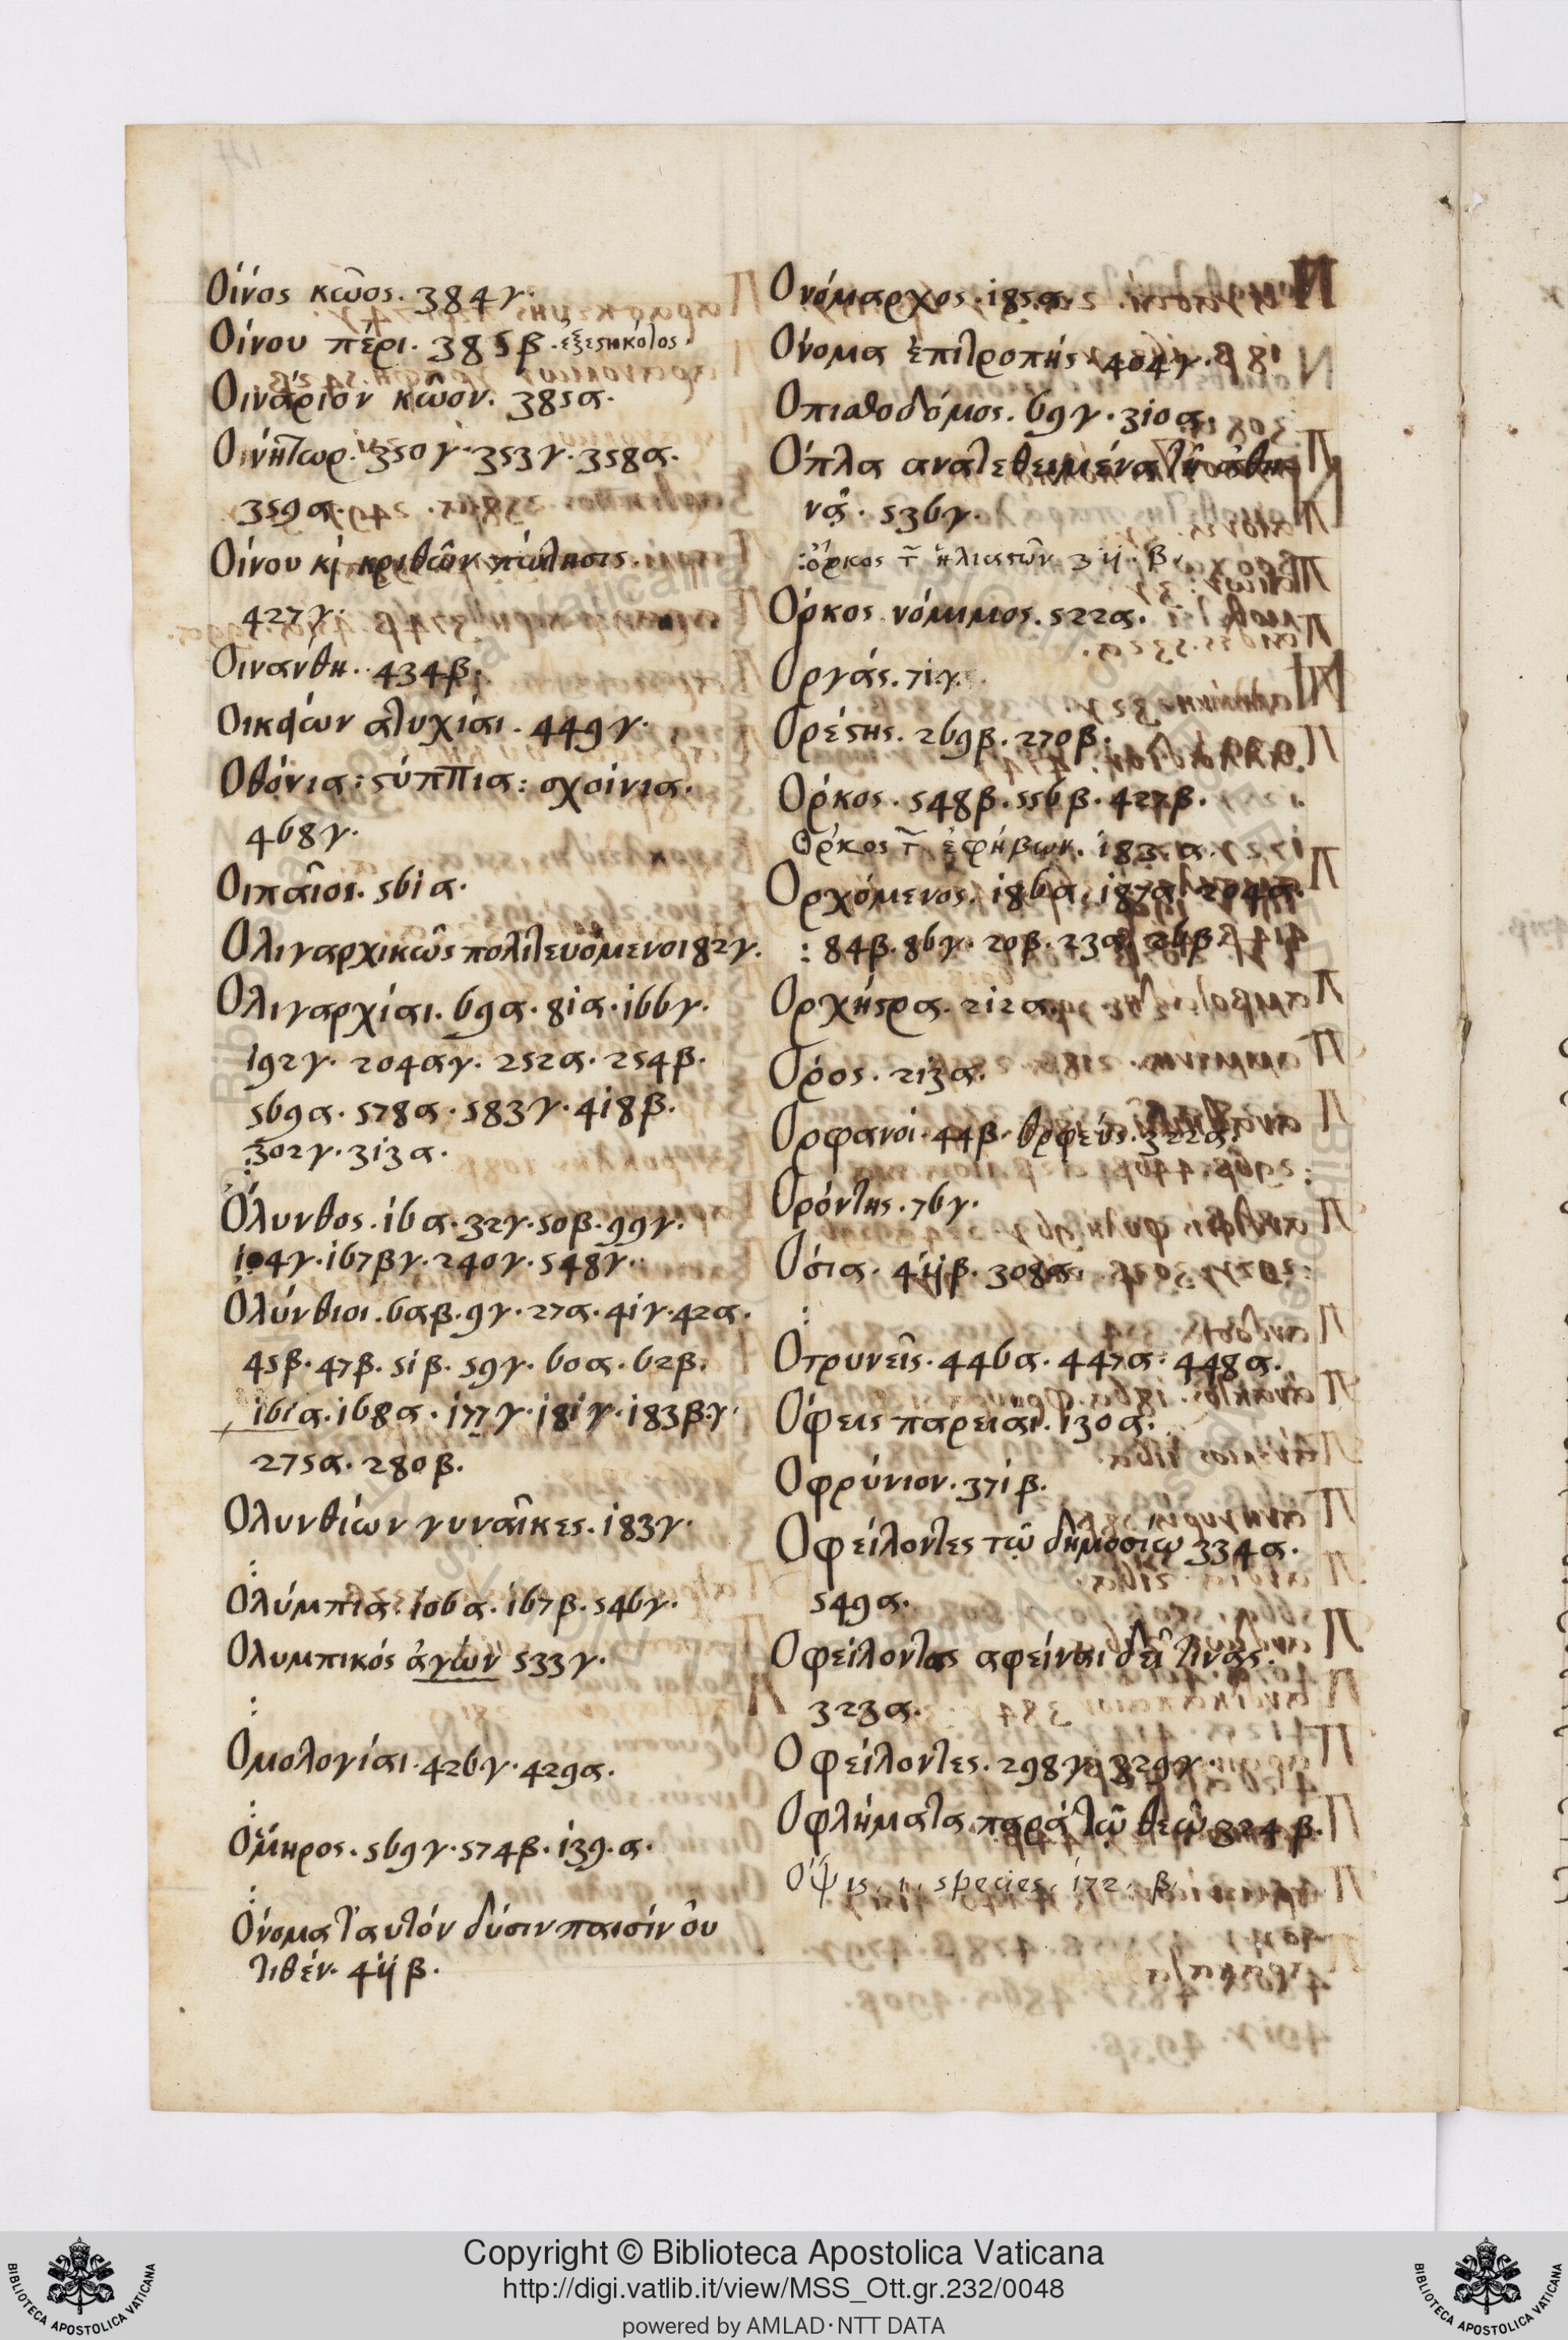 Οίνος κῶος. 384γ.
Οίνου πέρι. 385β. ἐξεστηκότος.
Οινάριον κῶον. 385α.
Οινήτωρ. 350γ. 353γ. 358α.
359α.
Οίνου κὶ κριθῶν πώλησις.
427γ.
Οινανθη. 434β.
Οικείων ατυχίαι. 449γ.
Οθόνια: στύππια: σχοίνια.
468γ.
Οιπαῖοι. 561α.
Ολιγαρχικῶς πολιτευόμενοι 82γ.
Ολιγαρχίαι. 69α. 81α. 166γ.
192γ. 204αγ. 252α. 254β.
569α. 578α. 583γ. 418β.
302γ. 313α.
Όλυνθος. 16α. 32γ. 50β. 99γ.
104γ. 167βγ. 240γ. 548γ.
Ολύνθιοι. 6αβ. 9γ. 27α. 41γ. 42α.
45β. 47β. 51β. 59γ. 60α. 62β.
161α. 168α. 177γ. 181γ. 183β.γ.
275α. 280β.
Ολυνθίων γυναῖκες. 183γ.
Ολύμπια. 106α. 167β. 546γ.
Ολυμπικός ἀγών 533γ.
Ομολογίαι. 426γ. 429α.
Όμηρος. 569γ. 574β. 139.α.
Όνομα ταυτόν δύσιν παισίν ὀυ
τιθέν. 411β.
Ονόμαρχος. 185α.
Όνομα ἐπιτροπής. 404γ.
Οπισθοδόμος. 69γ. 310α.
Όπλα ανατεθειμένα τῆ ἀθη-
νᾷ. 536γ.
:όρκος τ ἡλιαστῶν 311. β.
Ορκος νόμιμος. 522α.
Οργάς. 71γ.
Ορέστης. 269β. 270β.
Ορκος. 548β. 556β. 427β.
Ορκος τ ἐφήβων. 183. α.
Ορχόμενος. 186α. 187α. 204α.
: 84β. 86γ. 20β. 23α. 26β.
Ορχήστρα. 212α.
Ορος. 213α.
Ορφανοί. 44β. Ορφεύς. 322α.
Ορόντης. 76γ.
Όσια. 411β. 308α.
Οτρυνεῖς. 446α. 447α. 448α.
Όφεις παρειαι. 130α.
Οφρύνιον. 371β.
Οφείλοντες τῷ δημοσίω 334α.
549α.
Οφείλοντας αφείναι δεῖ τινας.
323α.
Οφείλοντες. 298γ. 329γ.
Οφλήματα παρά τῷ θεῷ 324β.
Ὄψις, .ι. species. 172. β.
Copyright © Biblioteca Apostolica Vaticana
http://digi.vatlib.it/view/MSS_Ott.gr.232/0048
powered by AMLAD·NTT DATA
BIBLIOTECA APOSTOLICA VATICANA
BIBLIOTECA APOSTOLICA VATICANA